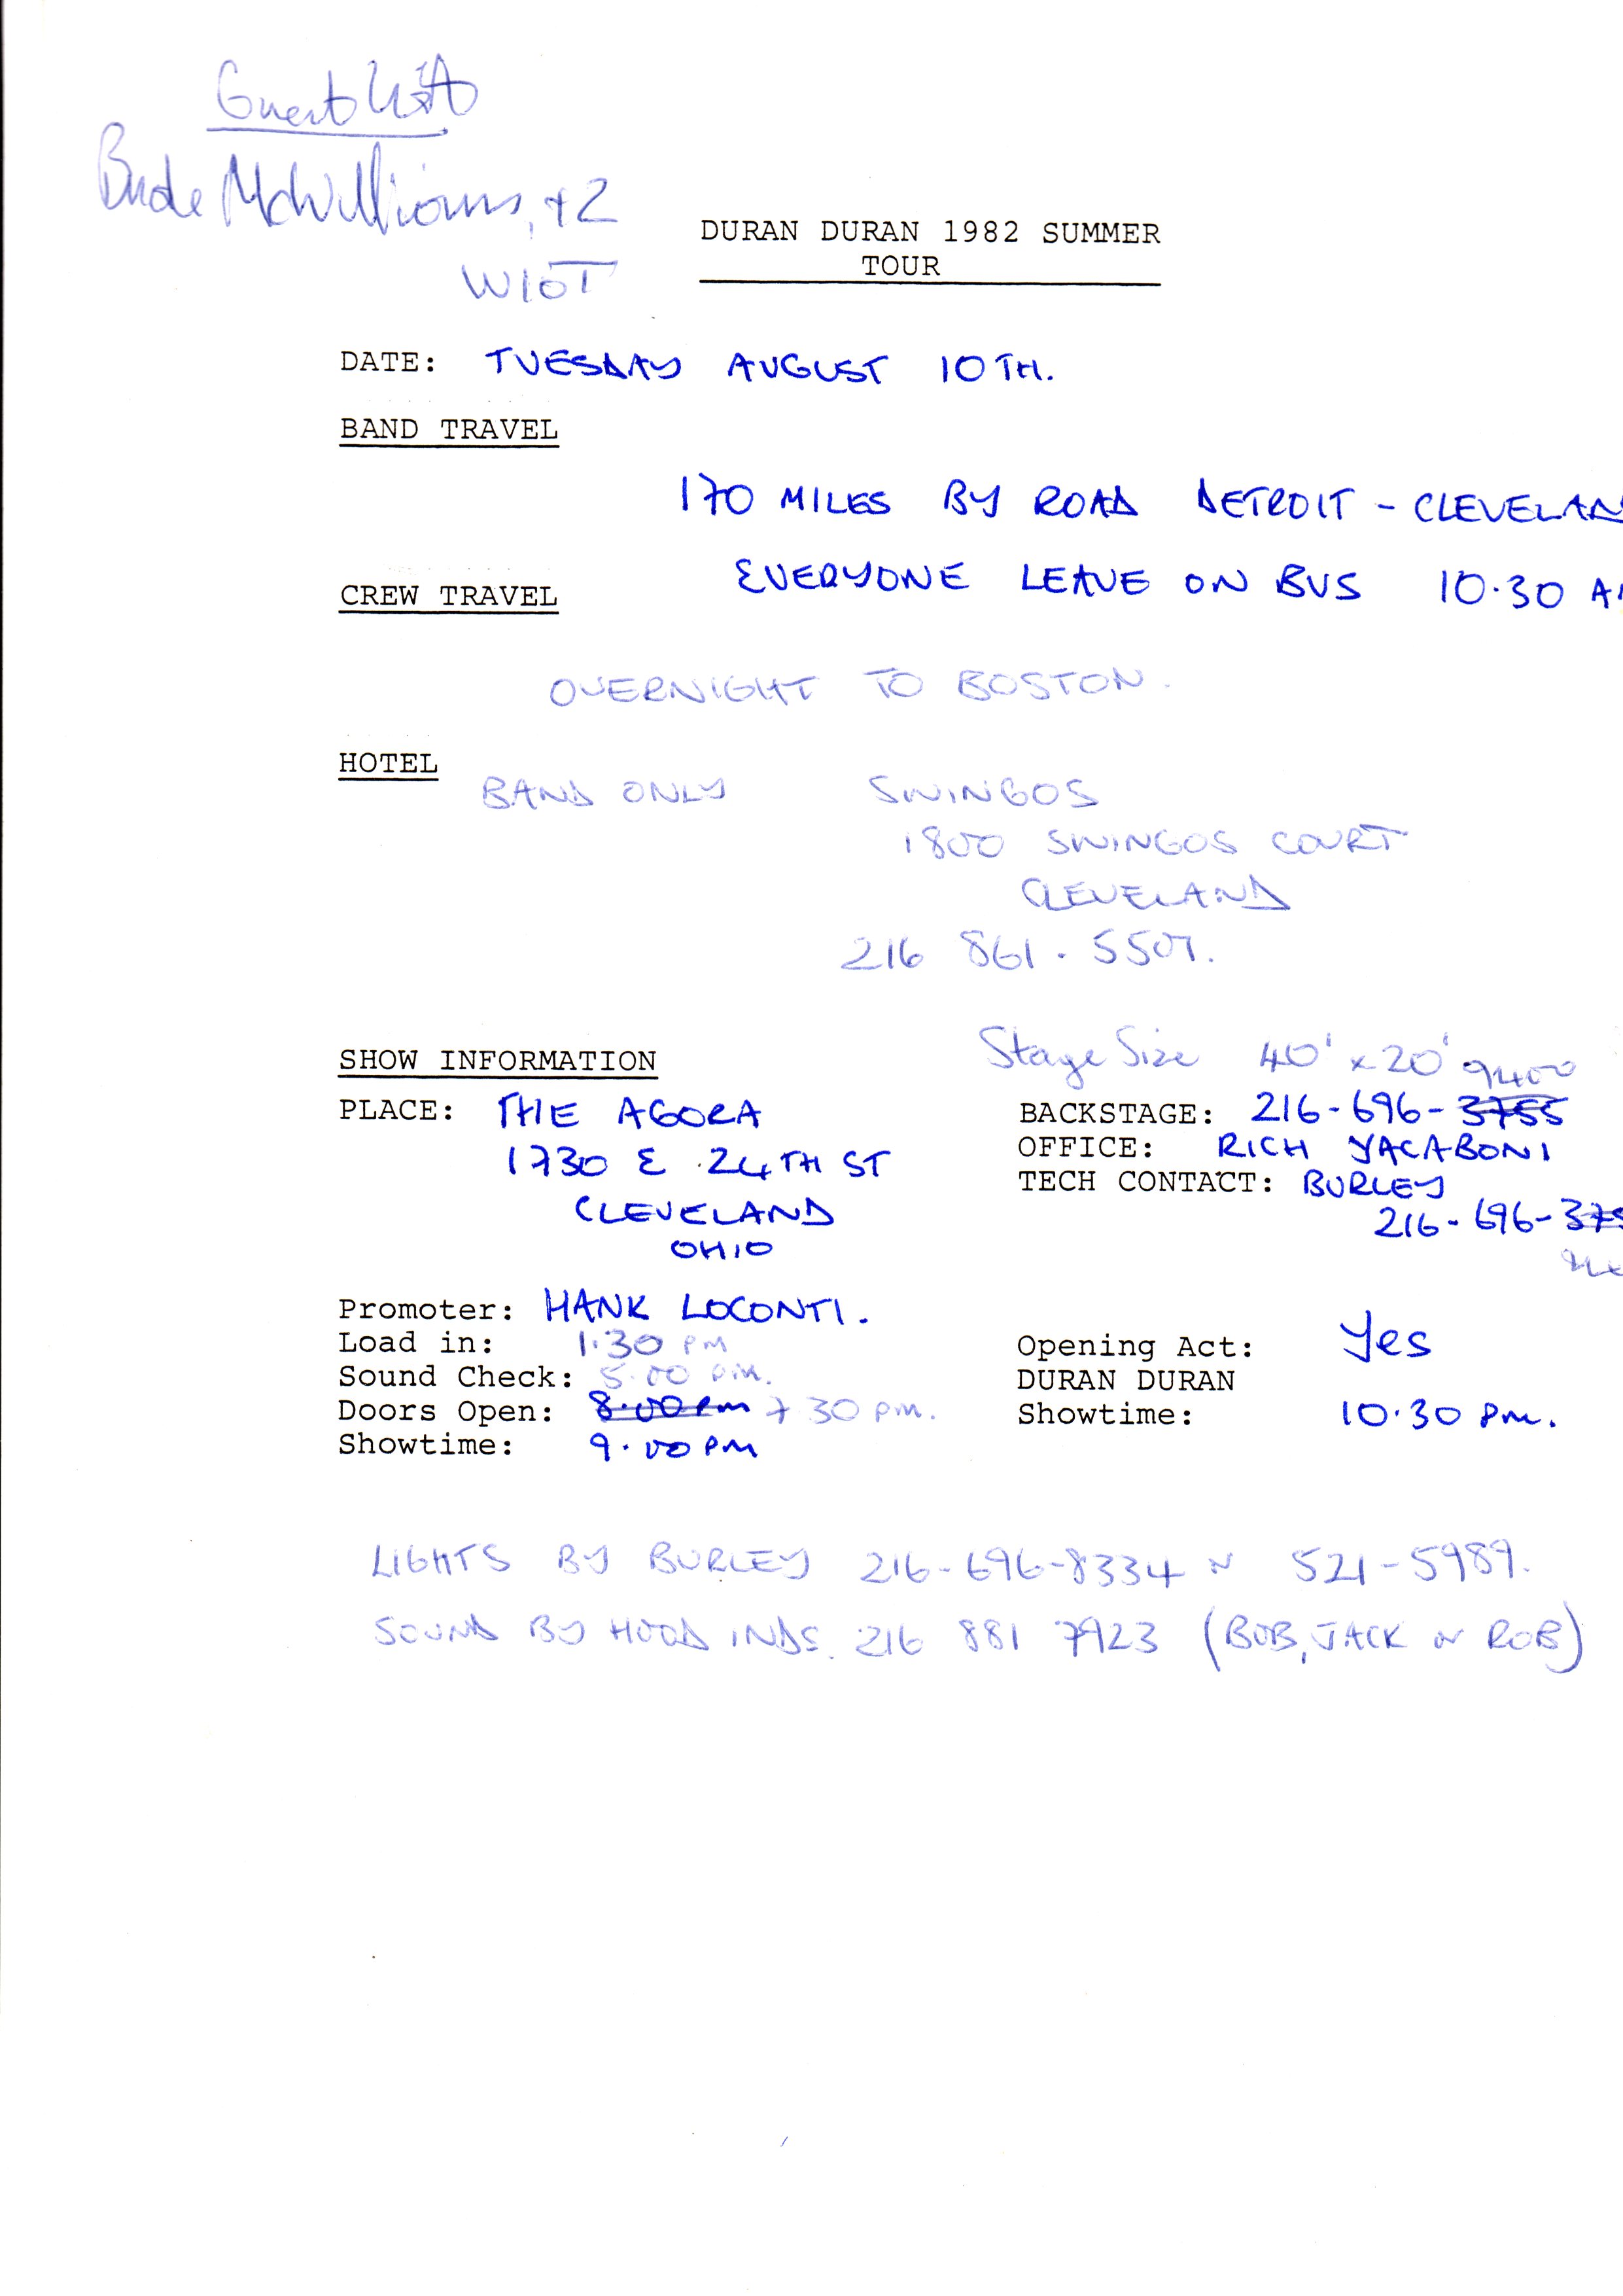 Guest List
McWilliams, +2
WIOT
DURAN DURAN 1982 SUMMER
TOUR
DATE: TUESDAY AUGUST 10TH.
BAND TRAVEL
170 MILES BY ROAD DETROIT - CLEVELAN
EVERYONE LEAVE ON BUS 10.30 A
CREW TRAVEL
OVERNIGHT TO BOSTON.
HOTEL
BAND ONLY SWINGOS
1800 SWINGOS COURT
CLEVELAND
216 861 - 5501.
Stage Size 40' x 20'
SHOW INFORMATION
9400
PLACE: THE AGORA BACKSTAGE: 216-696-3755
1730 E 24TH ST OFFICE: RICH YACABONI
TECH CONTACT: BURLEY
CLEVELAND 216-696-375
OHIO
Promoter: HANK LOCONTI.
Load in: 1.30 PM Opening Act: Yes
Sound Check: 5.00 P.M. DURAN DURAN
Doors Open: 8.00 PM 7 30 P.M. Showtime: 10.30 PM.
Showtime: 9.00 PM
LIGHTS BY BURLEY 216-696-8334 or 521-5989.
SOUND BY HOOD INDS. 216 881 7923 (BOB, JACK or ROB)